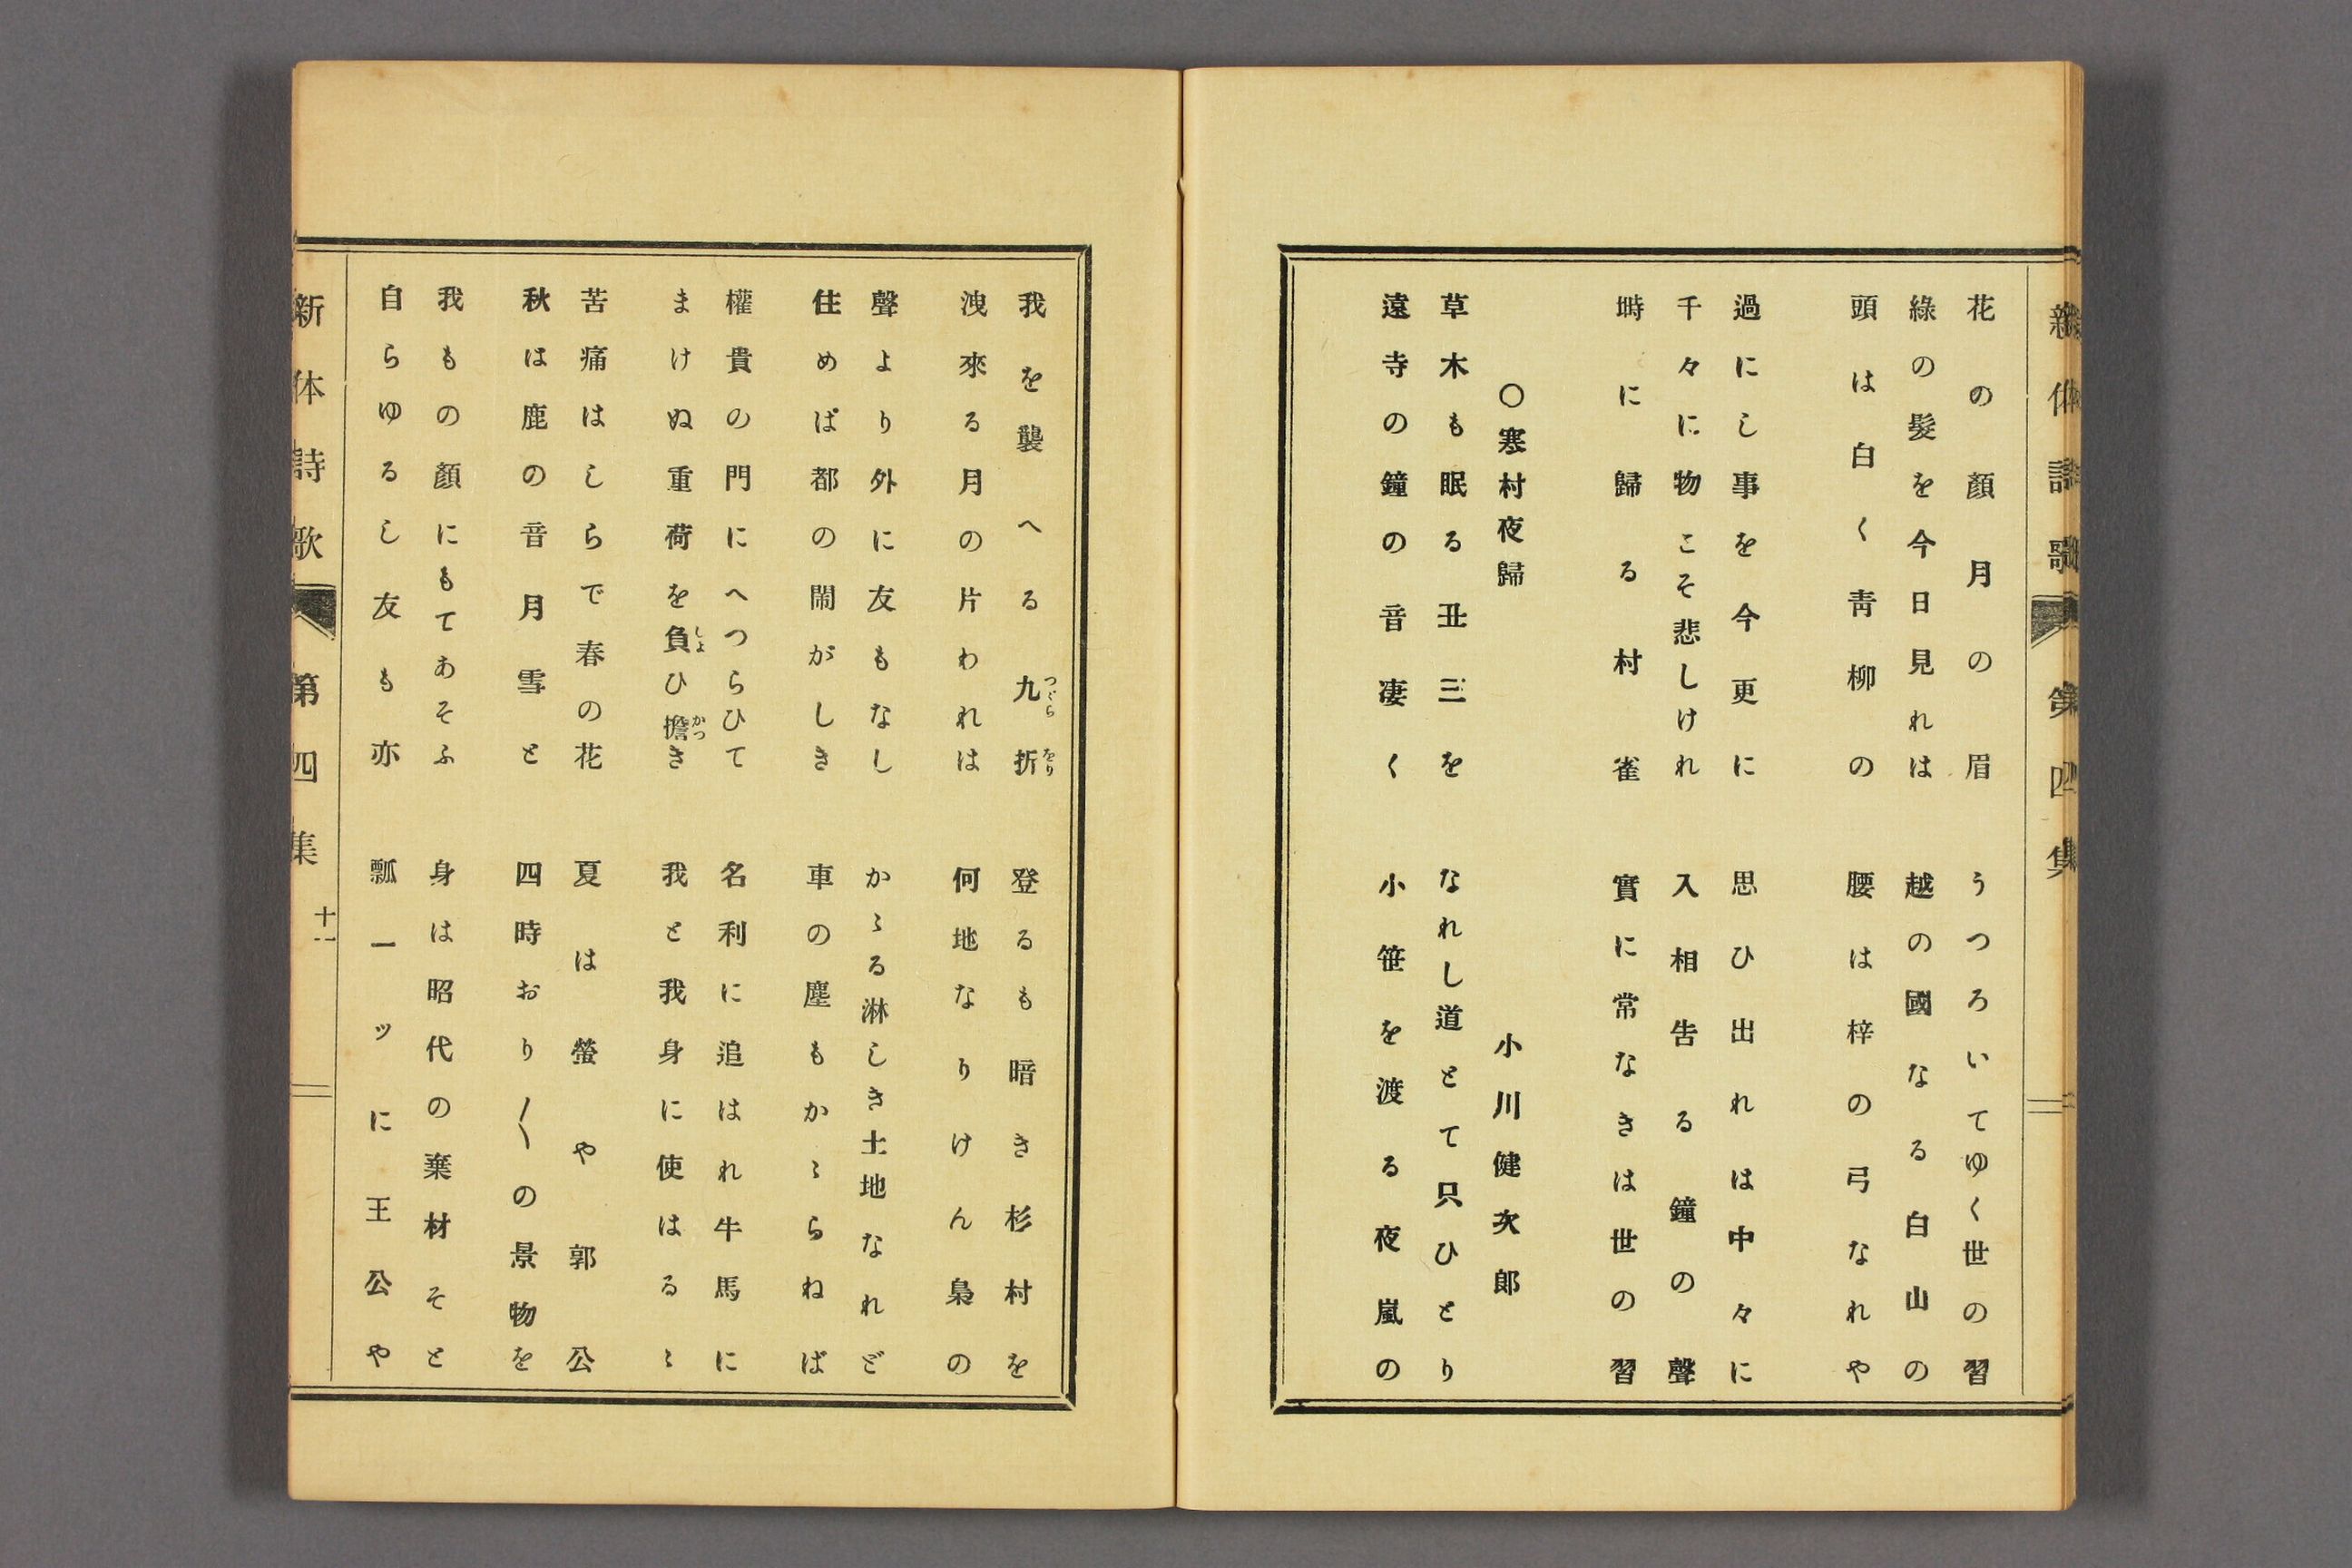 新体詩歌 第四集
花の顔月の眉　うつろいてゆく世の習
綠の髮を今日見れは　越の國なる白山の
頭は白く靑柳の　腰は梓の弓なれや
過にし事を今更に　思ひ出れは中々に
千々に物こそ悲しけれ　入相告る鐘の聲
塒に歸る村雀　實に常なきは世の習
〇寒村夜歸　小川健次郎
草木も眠る丑三を　なれし道とて只ひとり
遠寺の鐘の音凄く　小笹を渡る夜嵐の
我を襲へる九折　登るも暗き杉村を
つゞらをり
洩來る月の片われは　何地なりけん梟の
聲より外に友もなし　かゝる淋しき土地なれど
住めば都の閙がしき　車の塵もかゝらねば
權貴の門にへつらひて　名利に追はれ牛馬に
まけぬ重荷を負ひ擔き　我と我身に使はるゝ
しよ　かつ
苦痛はしらで春の花　夏は螢や郭公
秋は鹿の音月雪と　四時おり〱の景物を
我もの顔にもてあそふ　身は昭代の棄材そと
自らゆるし友も亦　瓢一ッに王公や
新体詩歌 第四集 十一